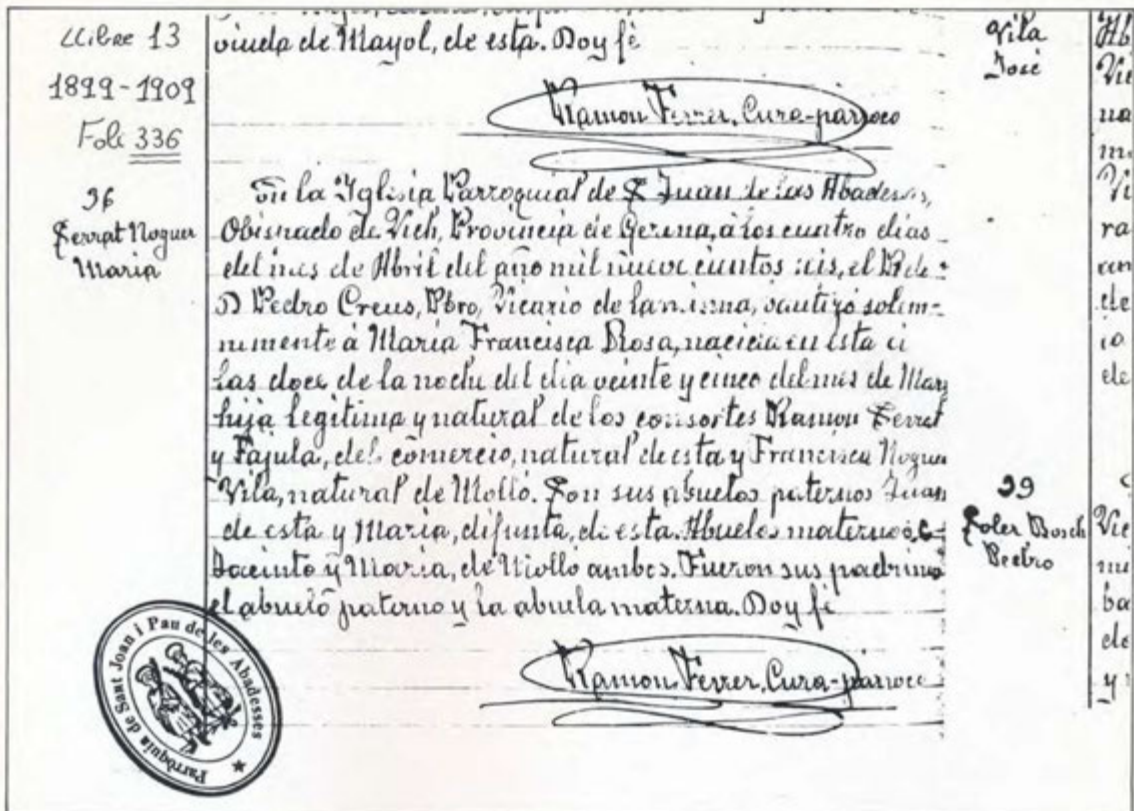 Llibre 13
1899-1909
Foli 336
viuda de Mayol, de esta. Doy fé
Ramon Ferrer, Cura-párroco
36
Serrat Noguer
Maria
En la Iglesia Parroquial de S Juan de las Abadesas,
Obispado de Vich, Provincia de Gerona, á los cuatro dias
del mes de Abril del año mil nueve cientos seis, el Rdo
D Pedro Creus, Pbro, Vicario de la misma, bautizó solem-
nemente á Maria Francisca Rosa, nacida en esta á
las doce de la noche del dia veinte y cinco del mes de Marz
hija legitima y natural de los consortes Ramon Serrat
y Fajula, del comercio, natural de esta y Francisca Noguer
Vila, natural de Molló. Son sus abuelos paternos Juan
de esta y Maria, difunta, de esta. Abuelos maternos
Jacinto y Maria, de Molló ambos. Fueron sus padrinos
el abuelo paterno y la abuela materna. Doy fé
Ramon Ferrer, Cura-párroco
Parròquia de Sant Joan i Pau de les Abadesses
Vila
José
39
Soler Bosch
Pedro